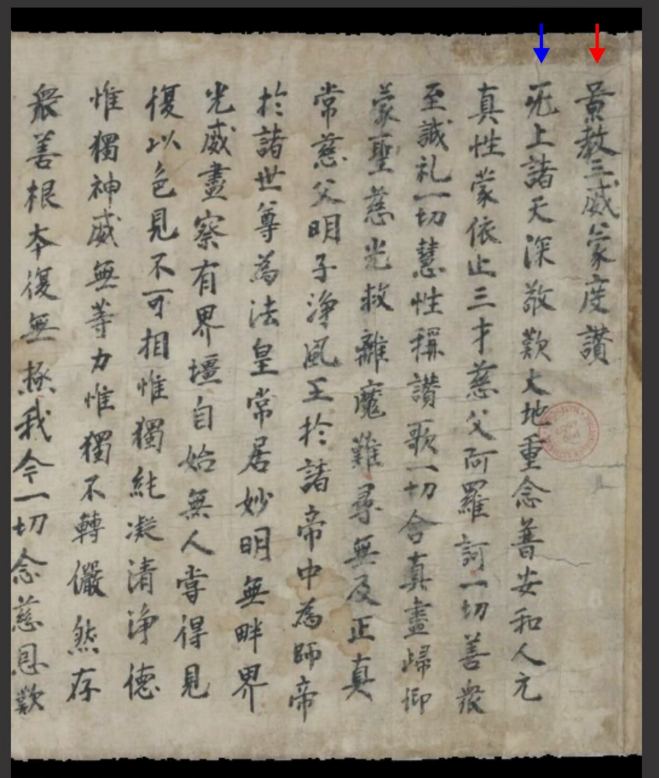 景教三威蒙度讚
无上諸天深敬歎大地重念普安和人元
真性蒙依止三才慈父阿羅訶一切善衆
至誠礼一切慧性稱讚歌一切含真盡歸仰
蒙聖慈光救離魔難尋無及正真
常慈父明子淨風王於諸帝中為師帝
於諸世尊為法皇常居妙明無畔界
光威盡察有界壃自始無人嘗得見
復以色見不可相惟獨純凝清淨德
惟獨神威無等力惟獨不轉儼然存
衆善根本復無極我今一切念慈恩歎